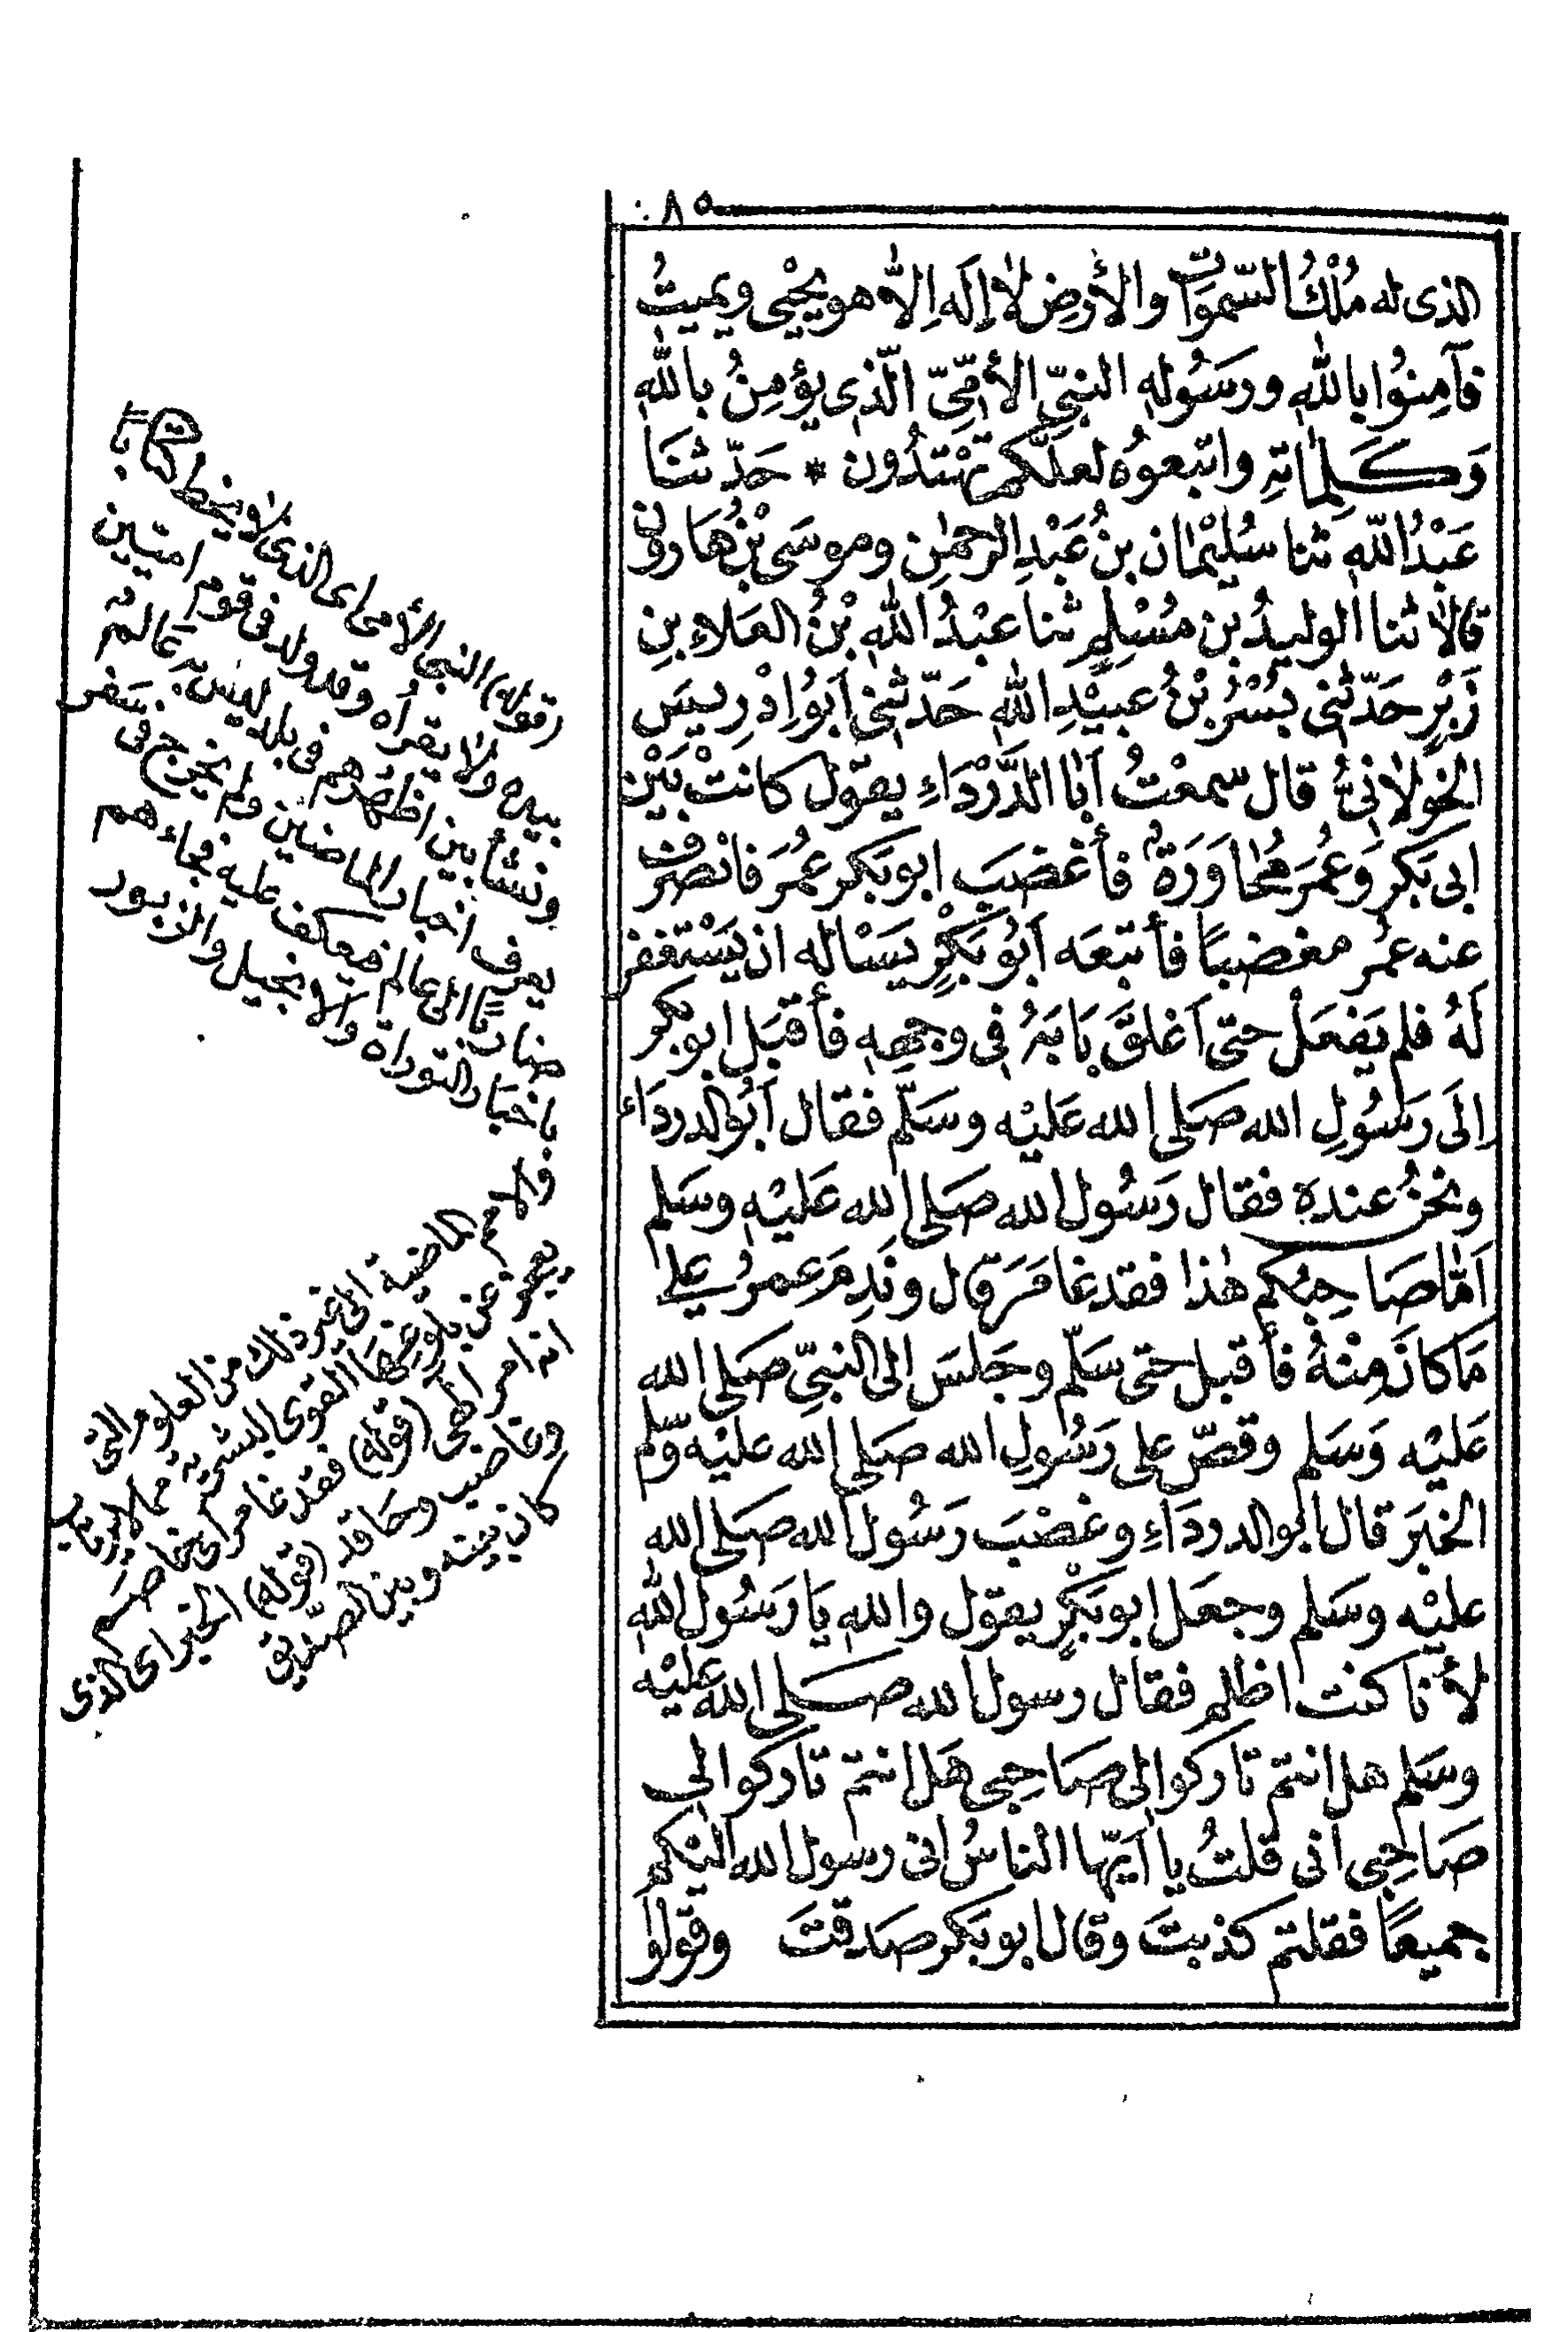 ٨٥
الذى له مُلْكُ السّمواتِ والأرْضِ لا إلَه إلّا هو يُحْيى ويميتُ
فآمِنوُا باللّهِ ورسَوُله النبىّ الأمّىّ الّذى يؤمِنُ باللّهِ
وَكَلِماتِهِ واتبعوُه لعلّكم تَهْتدُون * حَدّثنَا
عَبْدُاللّهِ ثنا سُليْمٰان بنُ عَبْدِ الرحمٰنِ وموسَى بْنُ هَارون
قالا ثنا الوليدُ بن مُسْلِمٍ ثنا عبْدُ اللّهِ بْنُ العَلاءِ بنِ
زَبْرٍ حَدّثنى بُسْرُ بْنُ عبيْدِ اللّهِ حَدّثنى أبوُ إدْرِيسَ
الخَوْلانىُّ قال سمعْتُ أبا الدَّرْدَاءِ يقول كانتْ بَيْن
ابى بَكرٍ وَعُمَرَ مُحٰاوَرَةٌ فأغضَبَ ابو بَكر عمُرَ فانصْرف
عنه عمُر مغضبًا فأتبعَه أبُو بَكْرٍ يَسْاله ان يَسْتغفر
لَهُ فلم يَفعَلْ حتى أغلقَ بَابَهُ فى وجهِه فأقبَل ابو بكر
إلَى رَسُولِ الله صَلى الله عَليْه وسَلّم فقال أبُوالدردَاء
ونحْنُ عندهِ فقال رَسُول الله صَلى الله عَليْهِ وسَلم
أمّا صَاحِبُكم هٰذا فقد غامَرَ قال ونَدِمَ عمرُ على
مَا كانَ مِنْهُ فأقبل حتى سَلّم وجَلسَ الى النبىِّ صَلى الله
عَليْه وَسَلم وقصّ على رَسُولِ الله صَلى الله عليْه وسّلم
الخبَرَ قال ابوالدردَاءِ وغضبَ رَسُول الله صَلى الله
عليْه وسَلم وجعَل ابو بَكْرٍ يقول واللهِ يَا رَسُول الله
لأنا كنت اظلم فقال رسول الله صَلى الله عليْه
وسَلم هل انتم تاركوا لى صَاحِبى هَل انتم تاركوا لى
صَاحِبى انى قلتُ يا أيّها الناسُ انى رسول الله اليْكم
جميعًا فقلتم كذبتَ وقال ابو بَكر صَدقتَ وقولوا
(قوله) النبى الأمى اى الذى لا يخط كتابًا
بيده ولا يقرأه وقد ولد فى قوم اميين
ونشأ بين اظهرهم فى بلد ليسَ به عَالم
يعرف اخبار الماضين ولم يخرج فى سَفر
ضاربًا الى عالم فيعكف عليه فجاءهم
باخبَار التوراة والانجيل والزبور
والامم الماضية الى غير ذلك من العلوم التى
يعجز عن بلوغها القوى البشرية مما لا يرتاب
انه امر الهى (قوله) فقد غامر اى خاصَم
وغاضب وحَاقد (قوله) الخبر اى الذى
كان بينه وبين الصديق